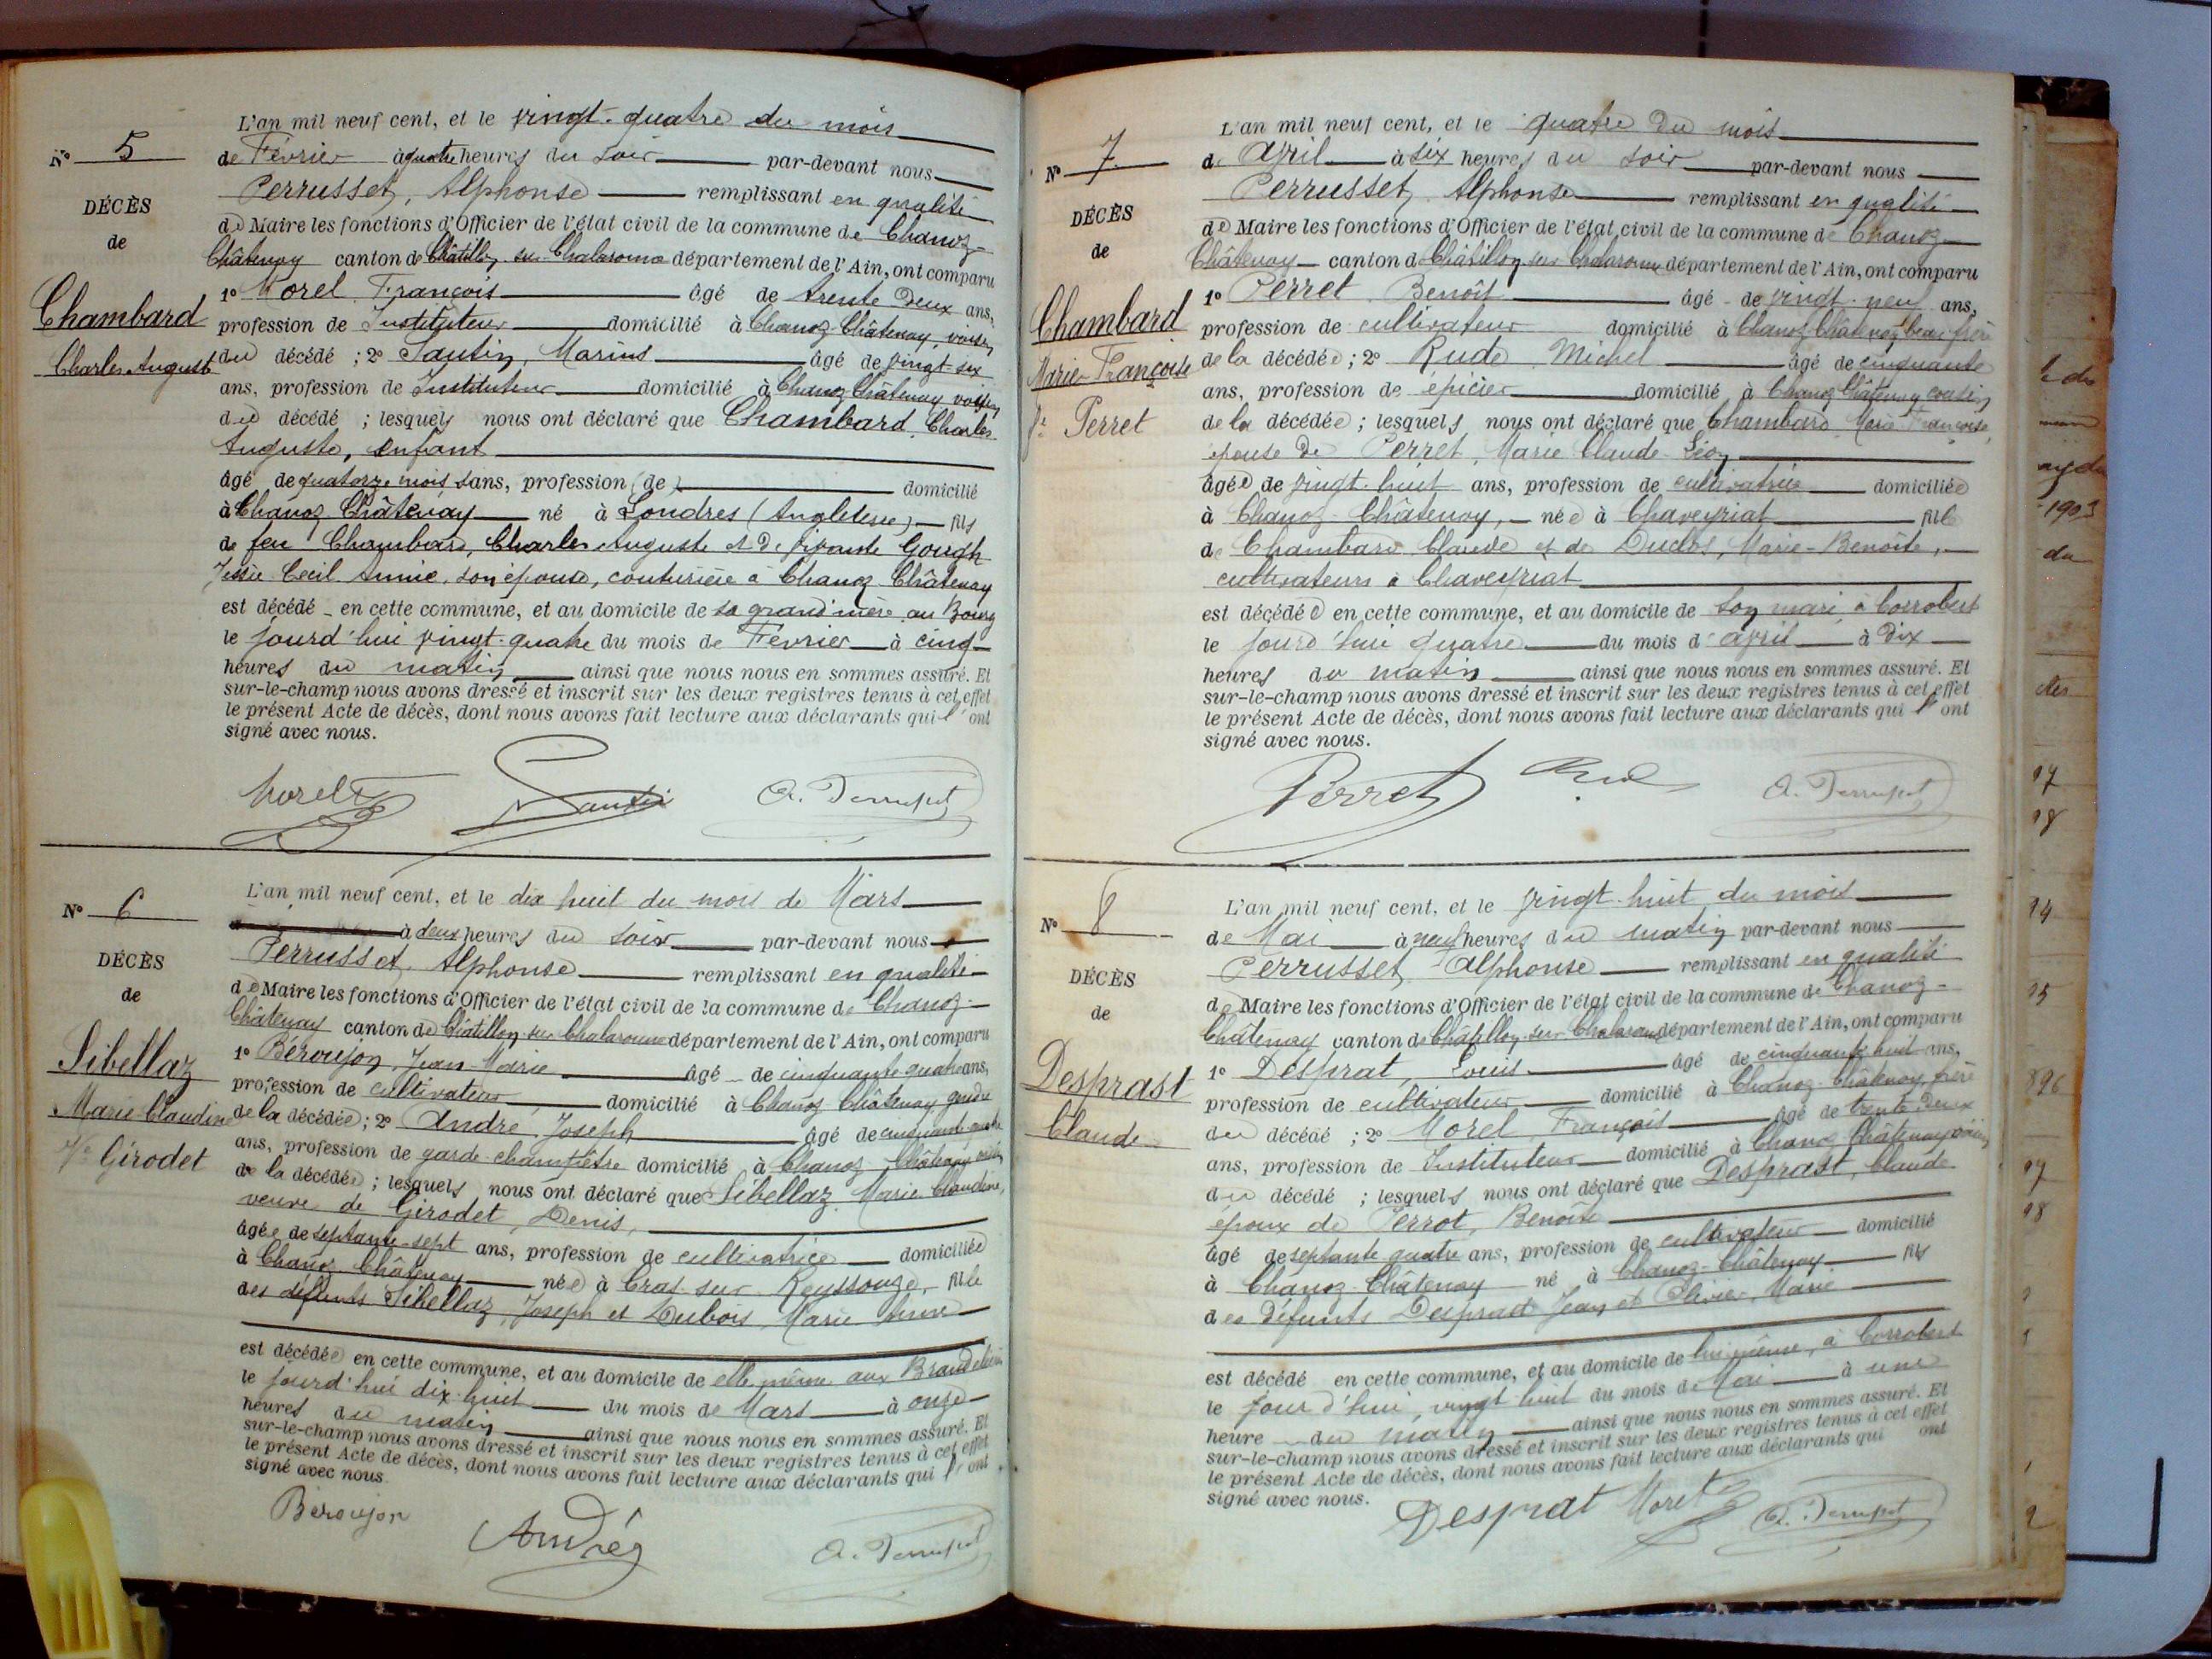 N° 5
DÉCÈS
de
Chambard
Charles Auguste
L'an mil neuf cent, et le vingt-quatre du mois
de Février à quatre heures du soir par-devant nous
Perrusset, Alphonse remplissant en qualité
de Maire les fonctions d'Officier de l'état civil de la commune de Chanoz-
Châtenay canton de Châtillon sur Chalaronne département de l'Ain, ont comparu
1° Morel François âgé de trente deux ans,
profession de Instituteur domicilié à Chanoz-Châtenay, voisin
du décédé ; 2° Sautin, Marius âgé de vingt-six
ans, profession de Instituteur domicilié à Chanoz Châtenay voisin
du décédé ; lesquels nous ont déclaré que Chambard, Charles
Auguste, enfant
âgé de quatorze mois sans, profession (de) domicilié
à Chanoz Châtenay né à Londres (Angleterre) fils
de feu Chambard, Charles Auguste et de vivante Gough
Jessie Cecil Annie, son épouse, couturière à Chanoz Châtenay
est décédé en cette commune, et au domicile de sa grand'mère au Bourg
le jourd'hui vingt-quatre du mois de Février à cinq
heures du matin ainsi que nous nous en sommes assuré. Et
sur-le-champ nous avons dressé et inscrit sur les deux registres tenus à cet effet
le présent Acte de décès, dont nous avons fait lecture aux déclarants qui l'ont
signé avec nous.
Morel Sautin A. Perrusset
N° 6
DÉCÈS
de
Sibellaz
Marie Claudine
Ve Girodet
L'an mil neuf cent, et le dix huit du mois de Mars
à deux heures du soir par-devant nous
Perrusset Alphonse remplissant en qualité
de Maire les fonctions d'Officier de l'état civil de la commune de Chanoz-
Châtenay canton de Châtillon sur Chalaronne département de l'Ain, ont comparu
1° Béroujon, Jean-Marie âgé de cinquante quatre ans,
profession de cultivateur domicilié à Chanoz Châtenay gendre
de la décédée ; 2° André, Joseph âgé de cinquante quatre
ans, profession de garde-champêtre domicilié à Chanoz Châtenay voisin
de la décédée ; lesquels nous ont déclaré que Sibellaz, Marie Claudine,
veuve de Girodet, Denis,
âgée de septante-sept ans, profession de cultivatrice domiciliée
à Chanoz Châtenay née à Cras sur Reyssouze, fille
des défunts Sibellaz, Joseph et Dubois, Marie Anne
est décédée en cette commune, et au domicile de elle même aux
le jourd'hui dix-huit du mois de Mars à onze
heures du matin ainsi que nous nous en sommes assuré. Et
sur-le-champ nous avons dressé et inscrit sur les deux registres tenus à cet effet
le présent Acte de décès, dont nous avons fait lecture aux déclarants qui l'ont
signé avec nous.
Béroujon André A. Perrusset
N° 7
DÉCÈS
de
Chambard
Marie-Françoise
fe Perret
L'an mil neuf cent, et le quatre du mois
d' Avril à six heures du soir par-devant nous
Perrusset, Alphonse remplissant en qualité
de Maire les fonctions d'Officier de l'état civil de la commune de Chanoz-
Châtenay canton de Châtillon sur Chalaronne département de l'Ain, ont comparu
1° Perret Benoît âgé de vingt-neuf ans,
profession de cultivateur domicilié à Chanoz Châtenay beau frère
de la décédée ; 2° Rude Michel âgé de cinquante
ans, profession de épicier domicilié à Chanoz Châtenay cousin
de la décédée ; lesquels nous ont déclaré que Chambard Marie Françoise,
épouse de Perret, Marie Claude Léon
âgée de vingt-huit ans, profession de cultivatrice domiciliée
à Chanoz-Châtenay, née à Chaveyriat fille
de Chambard Claude et de Duclos, Marie-Benoîte,
cultivateurs à Chaveyriat
est décédée en cette commune, et au domicile de son mari, à Corrobert
le jourd'hui quatre du mois d'avril à dix
heures du matin ainsi que nous nous en sommes assuré. Et
sur-le-champ nous avons dressé et inscrit sur les deux registres tenus à cet effet
le présent Acte de décès, dont nous avons fait lecture aux déclarants qui l'ont
signé avec nous.
Perret A. Perrusset
N° 8
DÉCÈS
de
Desprast
Claude
L'an mil neuf cent, et le vingt-huit du mois
de Mai à neuf heures du matin par-devant nous
Perrusset Alphonse remplissant en qualité
de Maire les fonctions d'Officier de l'état civil de la commune de Chanoz-
Châtenay canton de Châtillon sur Chalaronne département de l'Ain, ont comparu
1° Desprat, Louis âgé de cinquante huit ans,
profession de cultivateur domicilié à Chanoz-Châtenay, frère
du décédé ; 2° Morel François âgé de trente deux
ans, profession de Instituteur domicilié à Chanoz Châtenay voisin
du décédé ; lesquels nous ont déclaré que Desprast, Claude
époux de Perrot, Benoîte
âgé de septante quatre ans, profession de cultivateur domicilié
à Chanoz-Châtenay né à Chanoz-Châtenay fils
des défunts Desprast Jean et Olivier, Marie
est décédé en cette commune, et au domicile de lui même, à Corrobert
le jourd'hui, vingt huit du mois de Mai à une
heure du matin ainsi que nous nous en sommes assuré. Et
sur-le-champ nous avons dressé et inscrit sur les deux registres tenus à cet effet
le présent Acte de décès, dont nous avons fait lecture aux déclarants qui ont
signé avec nous.
Desprat Morel A. Perrusset
1903
du